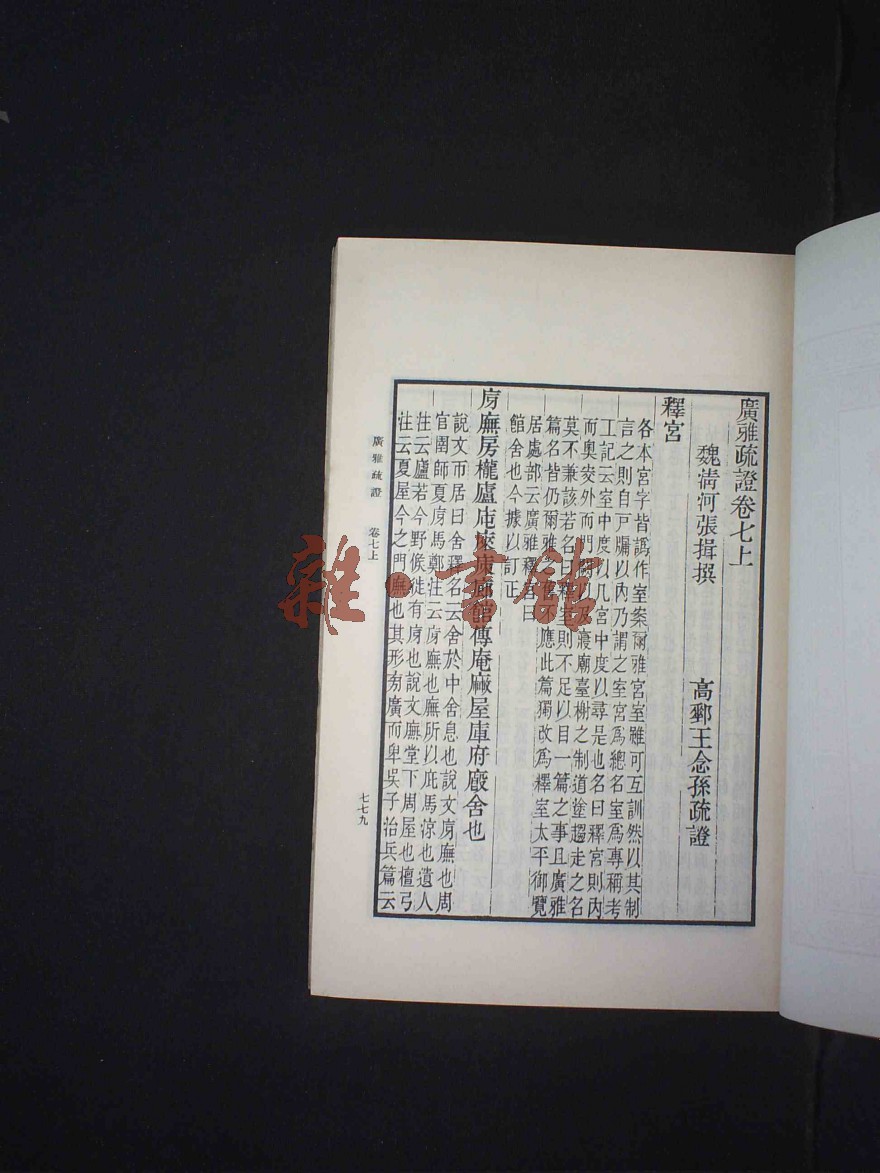 廣雅疏證卷七上
魏清河張揖撰 高郵王念孫疏證
釋宮
各本宮字皆譌作室案爾雅宮室雖可互訓然以其制
言之則自戶牖以內乃謂之室宮爲總名室爲專稱考
工記云室中度以几宮中度以尋是也名曰釋宮則內
而奧窔外而門闕以及寢廟臺榭之制道塗趨走之名
莫不兼該若名曰釋室則不足以目一篇之事且廣雅
篇名皆仍爾雅之舊不應此篇獨改爲釋室太平御覽
居處部云廣雅釋宮曰
館舍也今據以訂正
庌廡房櫳廬庉 庾廊館傳庵廠屋庫府廄舍也
說文市居曰舍釋名云舍於中舍息也說文庌廡也周
官圉師夏庌馬鄭注云庌廡也廡所以庇馬涼也遺人
注云廬若今野候徒有庌也說文廡堂下周屋也檀弓
注云夏屋今之門廡也其形旁廣而卑吳子治兵篇云
廣雅疏證 卷七上
七七九
雜·書館